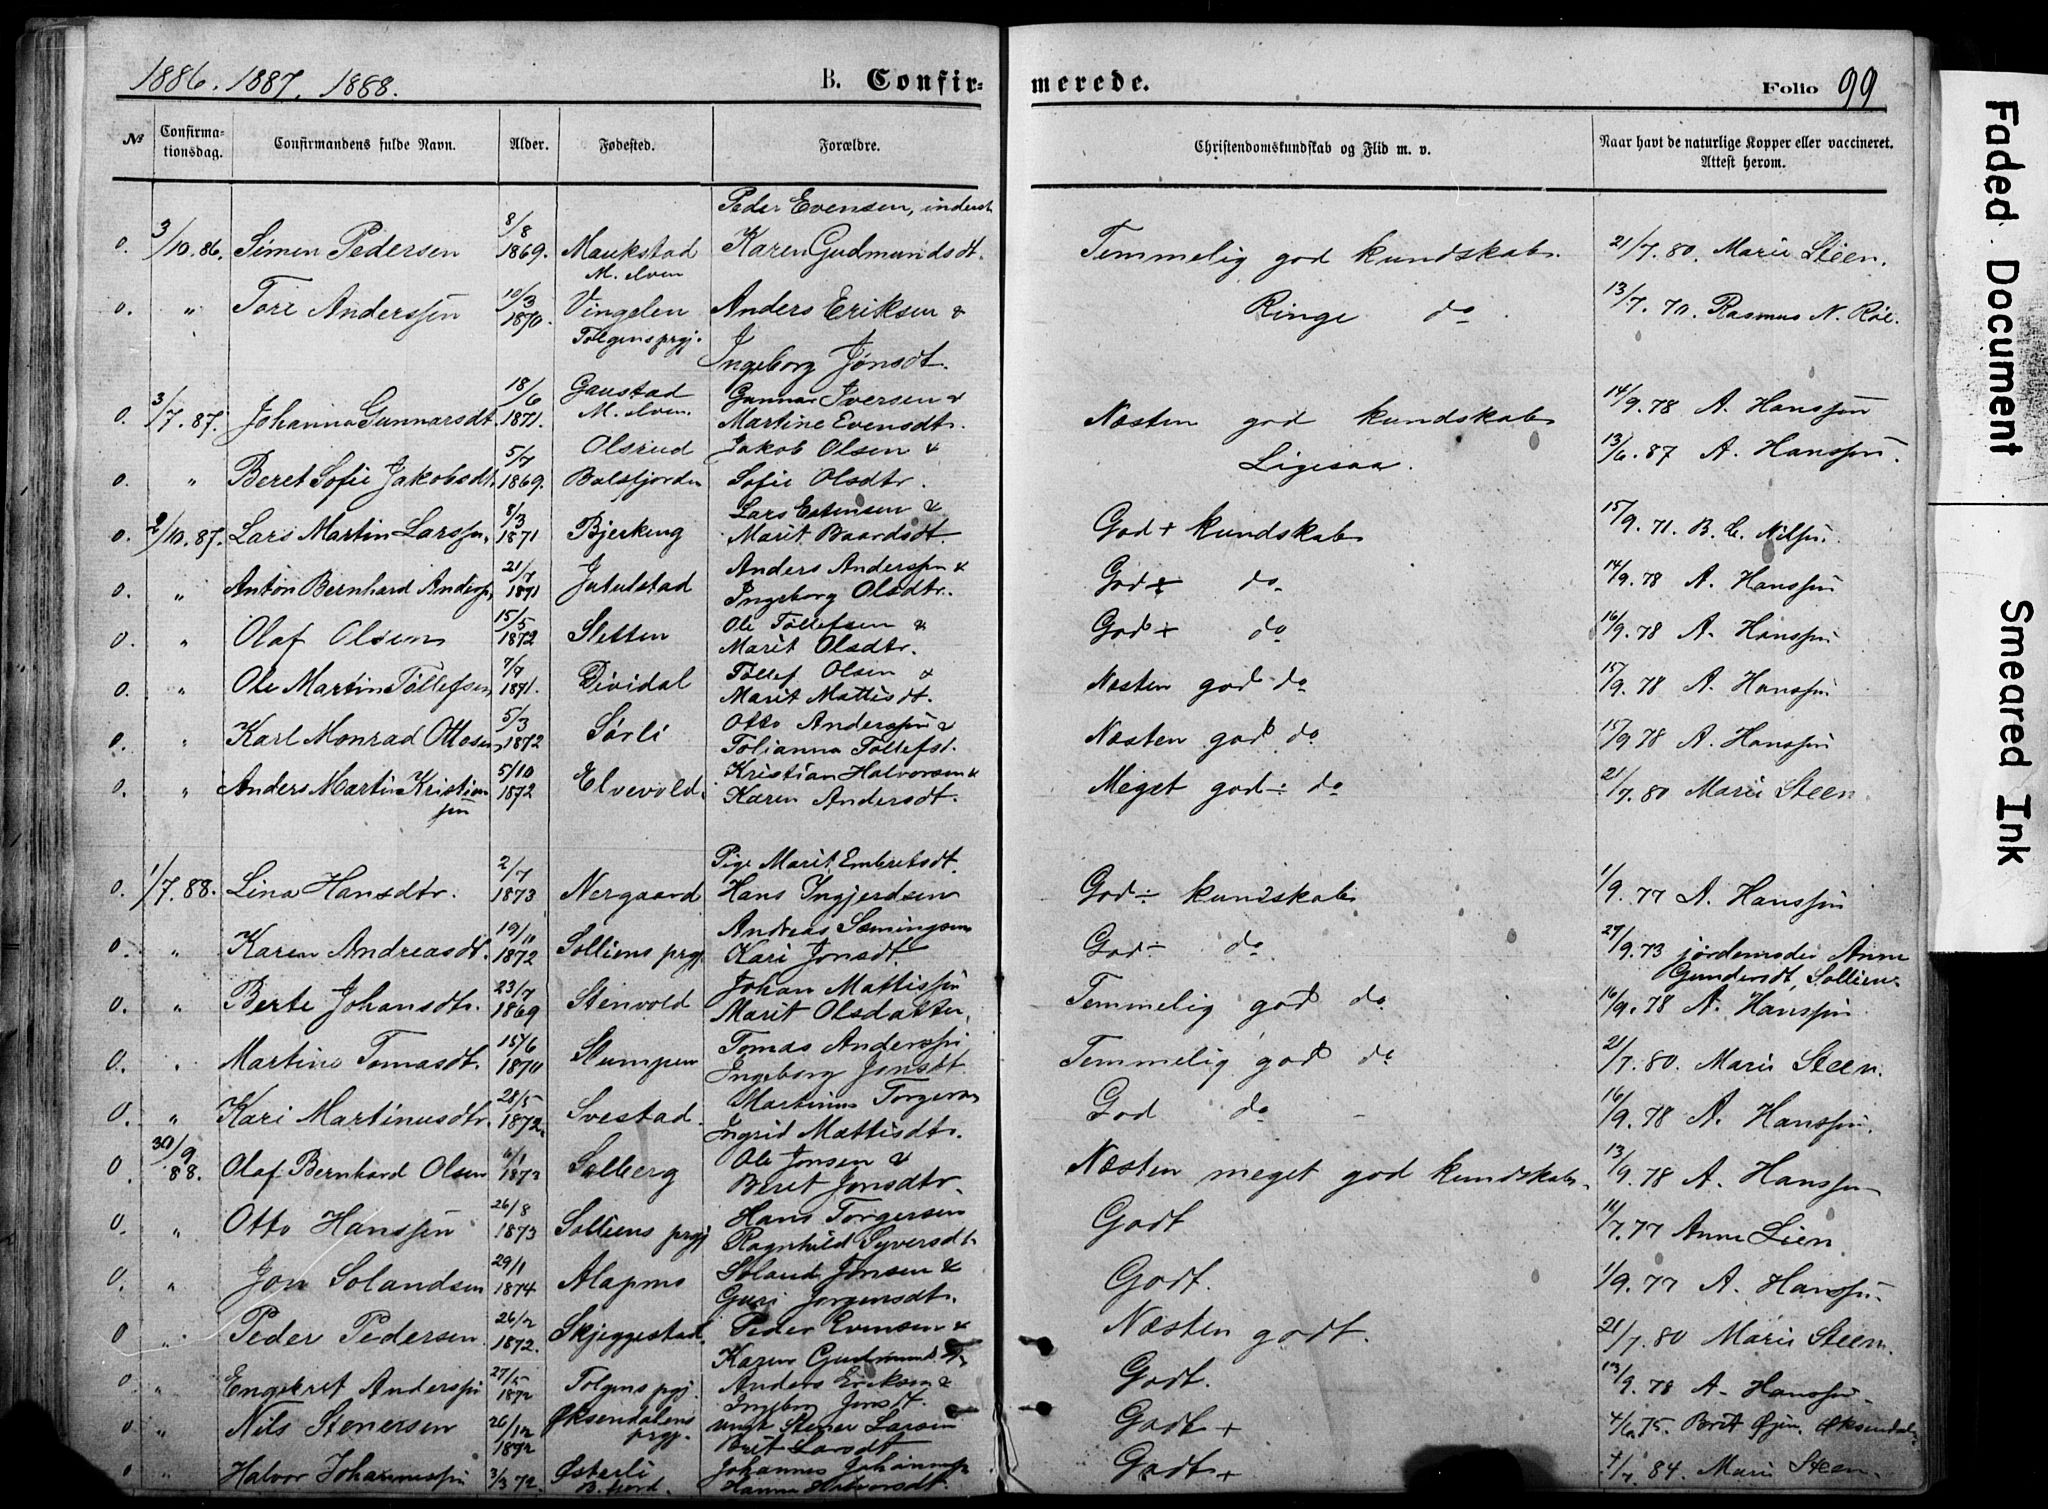 1886. 1887. 1888.
B. Confir-
merede.
Folio 99
№ Confirma-tionsdag. Confirmandens fulde Navn. Alder. Fødested. Forældre. Christendomskundskab og Flid m. v. Naar havt de naturlige Kopper eller vaccineret. Attest herom.
Peder Evensen, inderst
0. 3/10.86. Simen Pedersen 8/8 1869. Maukstad Karen Gudmundsdt. Temmelig god kundskab. 21/7.80. Marie Steen.
M. elven
0. " Tore Anderssøn 10/3 1870. Vingelen Anders Eriksen & Ringe do 13/7.70. Rasmus N. Røe.
Tolgens prgj. Ingeborg Jonsdt.
0. 3/7.87. Johanna Gunnarsdt. 18/6 1871. Gaustad Gunnar Iversen & Næsten god kundskab 14/9.78 A. Hanssøn
M. elven. Martine Evensdt.
0. " Beret Sofie Jakobsdt. 5/7 1869. Olsrud Jakob Olsen & Ligesaa. 13/6.87 A. Hanssøn.
Balsfjorden Sofie Olsdtr.
0. 2/10.87. Lars Martin Larssøn. 8/3 1871 Bjerkeng Lars Estensen & God + kundskab 15/9.71. B. C. Nilsøn.
Marit Baardsdt.
0. " Anton Bernhard Anderss. 21/7 1871 Jutulstad Anders Anderssøn & God + do 14/9.78 A. Hanssøn
Ingeborg Olsdtr.
0. " Olaf Olsen 15/5 1872 Sletten Ole Tollefsen & God + do 16/9.78 A. Hanssøn
Marit Olsdtr.
0. " Ole Martin Tollefsen 7/7 1871. Dividal Tollef Olsen & Næsten god do 15/9.78 A. Hanssøn
Marit Mattisdt.
0. " Karl Monrad Ottosen 5/3 1872 Sørli Otto Anderssøn & Næsten god do 15/9.78 A. Hanssøn
Tolianna Tollefsd.
0. " Anders Martin Kristian 5/10 1872 Elvevold. Kristian Halvorsen & Meget god ÷ do 21/7.80 Marie Steen.
søn Karen Andersdt.
Pige Marit Embretsdt.
0. 1/7.88. Lina Hansdtr. 2/7 1873 Nergaard Hans Ingjerdsen God ÷ kundskab 1/9.77 A. Hanssøn
0. " Karen Andreasdt. 19/11 1872 Solliens prgj. Andreas Sæmingsen God ÷ do 27/9.73 jordemoder Anne
Kari Jonsdt. Gundersdt, Sollien.
0. " Berte Johansdtr. 23/7 1869 Stenvold Johan Mattissøn Temmelig god do 16/9.78 A. Hanssøn
Marit Olsdatter.
0. " Martine Tomasdt. 15/6 1870 Stumpen Tomas Anderssøn Temmelig god do 21/7.80. Marie Steen.
Ingeborg Jonsdt.
0. " Kari Martinusdtr. 28/5 1872. Svestad. Martinus Torgersen God do 16/9.78 A. Hanssøn.
Ingrid Mattisdtr.
0. 30/9 88. Olaf Bernhard Olsen 6/1 1873 Solberg Ole Jonsen & Næsten meget god kundskab. 13/9.78 A. Hanssøn
Beret Jonsdtr.
0. " Otto Hanssøn 26/8 1873 Solliens prgj Hans Torgersen Godt 11/7.77 Anne Lien.
Ragnhild Syversdtr
0. " Jon Solandsen 29/1 1874 Alapmo Soland Jonsen & Godt. 1/9.77 A. Hanssøn.
Guri Jorgensdtr.
0 " Peder Pedersen 26/2 1872. Skjeggestad Peder Evensen & Næsten godt. 21/7.80 Marie Steen.
Karen Gudmundsdtr
0 " Engebret Anderssøn 27/5 1872 Tolgens prgj. Anders Eriksen & Godt. 13/9.78 A. Hanssøn.
Ingeborg Jonsdt.
0 " Nils Stenersen 26/12 1872 Øksendalens Stener Larsen Godt + 4/6.75. Brit Øksendal.
prgj. Brit Larsdt
0 " Halvor Johannessøn 3/3 72. Østerli Johannes Johannss Godt + 4/7.84. Marie Steen.
B. fjord. Hanna Halvorsdt.
Faded Document
Smeared Ink